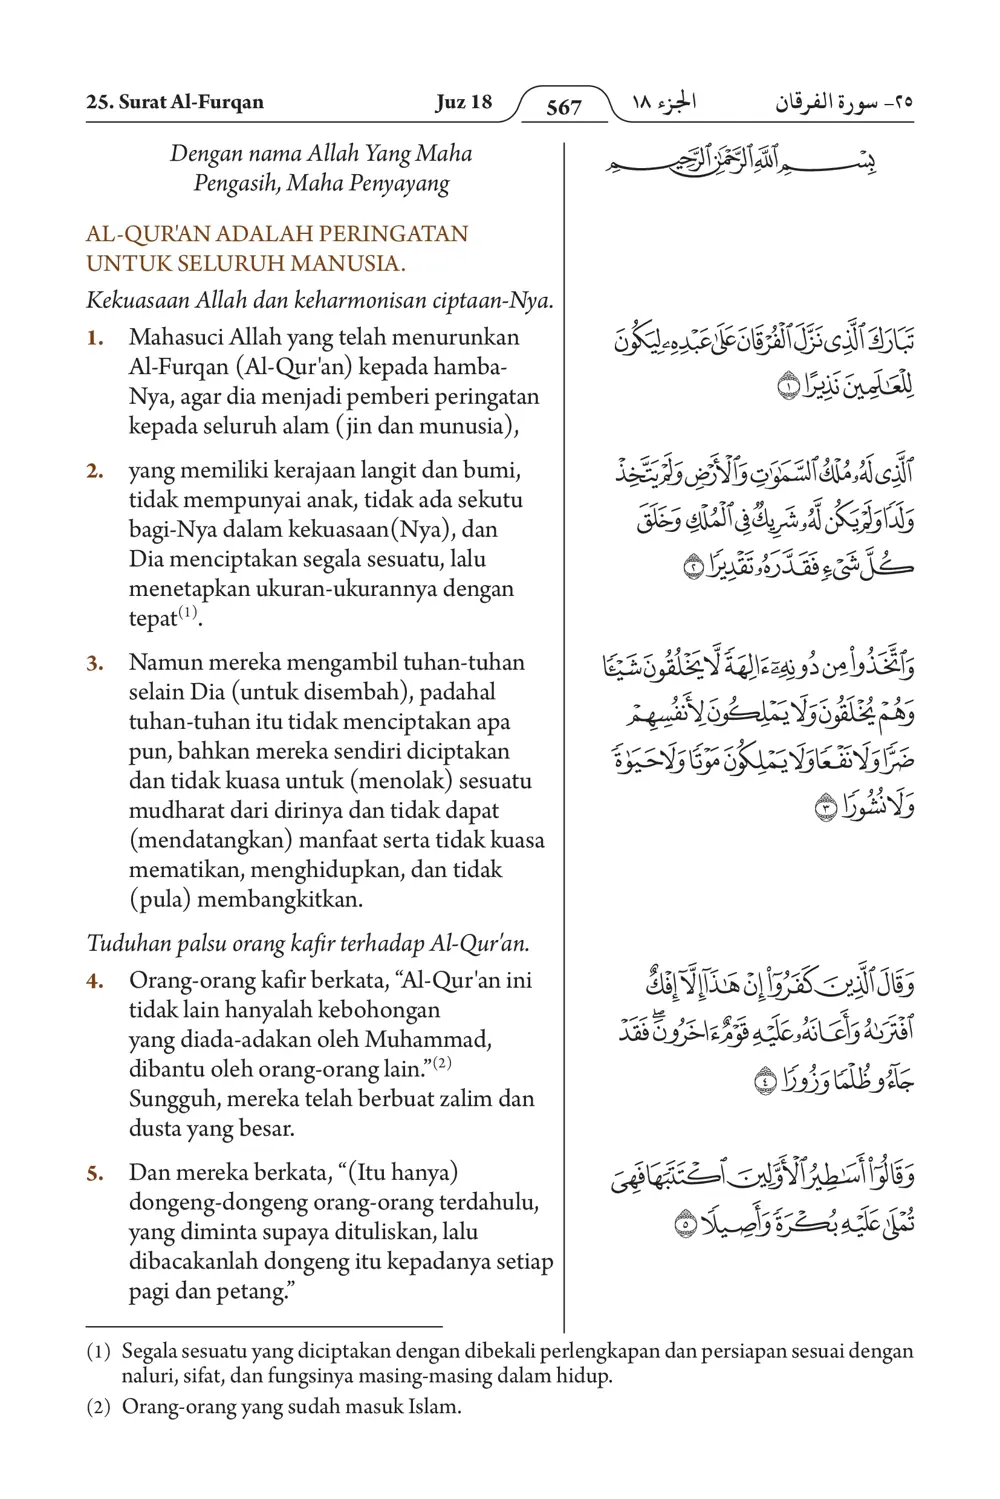 25. Surat Al-Furqan Juz 18 567 الجزء ١٨ ٢٥- سورة الفرقان
Dengan nama Allah Yang Maha
Pengasih, Maha Penyayang
AL-QUR'AN ADALAH PERINGATAN
UNTUK SELURUH MANUSIA.
Kekuasaan Allah dan keharmonisan ciptaan-Nya.
1. Mahasuci Allah yang telah menurunkan
Al-Furqan (Al-Qur'an) kepada hamba-
Nya, agar dia menjadi pemberi peringatan
kepada seluruh alam (jin dan munusia),
2. yang memiliki kerajaan langit dan bumi,
tidak mempunyai anak, tidak ada sekutu
bagi-Nya dalam kekuasaan(Nya), dan
Dia menciptakan segala sesuatu, lalu
menetapkan ukuran-ukurannya dengan
tepat(1).
3. Namun mereka mengambil tuhan-tuhan
selain Dia (untuk disembah), padahal
tuhan-tuhan itu tidak menciptakan apa
pun, bahkan mereka sendiri diciptakan
dan tidak kuasa untuk (menolak) sesuatu
mudharat dari dirinya dan tidak dapat
(mendatangkan) manfaat serta tidak kuasa
mematikan, menghidupkan, dan tidak
(pula) membangkitkan.
Tuduhan palsu orang kafir terhadap Al-Qur'an.
4. Orang-orang kafir berkata, “Al-Qur'an ini
tidak lain hanyalah kebohongan
yang diada-adakan oleh Muhammad,
dibantu oleh orang-orang lain.”(2)
Sungguh, mereka telah berbuat zalim dan
dusta yang besar.
5. Dan mereka berkata, “(Itu hanya)
dongeng-dongeng orang-orang terdahulu,
yang diminta supaya dituliskan, lalu
dibacakanlah dongeng itu kepadanya setiap
pagi dan petang.”
بِسْمِ ٱللَّهِ ٱلرَّحْمَٰنِ ٱلرَّحِيمِ
تَبَارَكَ ٱلَّذِى نَزَّلَ ٱلْفُرْقَانَ عَلَىٰ عَبْدِهِۦ لِيَكُونَ
لِلْعَٰلَمِينَ نَذِيرًا ١
ٱلَّذِى لَهُۥ مُلْكُ ٱلسَّمَٰوَٰتِ وَٱلْأَرْضِ وَلَمْ يَتَّخِذْ
وَلَدًا وَلَمْ يَكُن لَّهُۥ شَرِيكٌ فِى ٱلْمُلْكِ وَخَلَقَ
كُلَّ شَىْءٍ فَقَدَّرَهُۥ تَقْدِيرًا ٢
وَٱتَّخَذُوا۟ مِن دُونِهِۦٓ ءَالِهَةً لَّا يَخْلُقُونَ شَيْـًٔا
وَهُمْ يُخْلَقُونَ وَلَا يَمْلِكُونَ لِأَنفُسِهِمْ
ضَرًّا وَلَا نَفْعًا وَلَا يَمْلِكُونَ مَوْتًا وَلَا حَيَوٰةً
وَلَا نُشُورًا ٣
وَقَالَ ٱلَّذِينَ كَفَرُوٓا۟ إِنْ هَٰذَآ إِلَّآ إِفْكٌ
ٱفْتَرَىٰهُ وَأَعَانَهُۥ عَلَيْهِ قَوْمٌ ءَاخَرُونَ ۖ فَقَدْ
جَآءُو ظُلْمًا وَزُورًا ٤
وَقَالُوٓا۟ أَسَٰطِيرُ ٱلْأَوَّلِينَ ٱكْتَتَبَهَا فَهِىَ
تُمْلَىٰ عَلَيْهِ بُكْرَةً وَأَصِيلًا ٥
(1) Segala sesuatu yang diciptakan dengan dibekali perlengkapan dan persiapan sesuai dengan
naluri, sifat, dan fungsinya masing-masing dalam hidup.
(2) Orang-orang yang sudah masuk Islam.